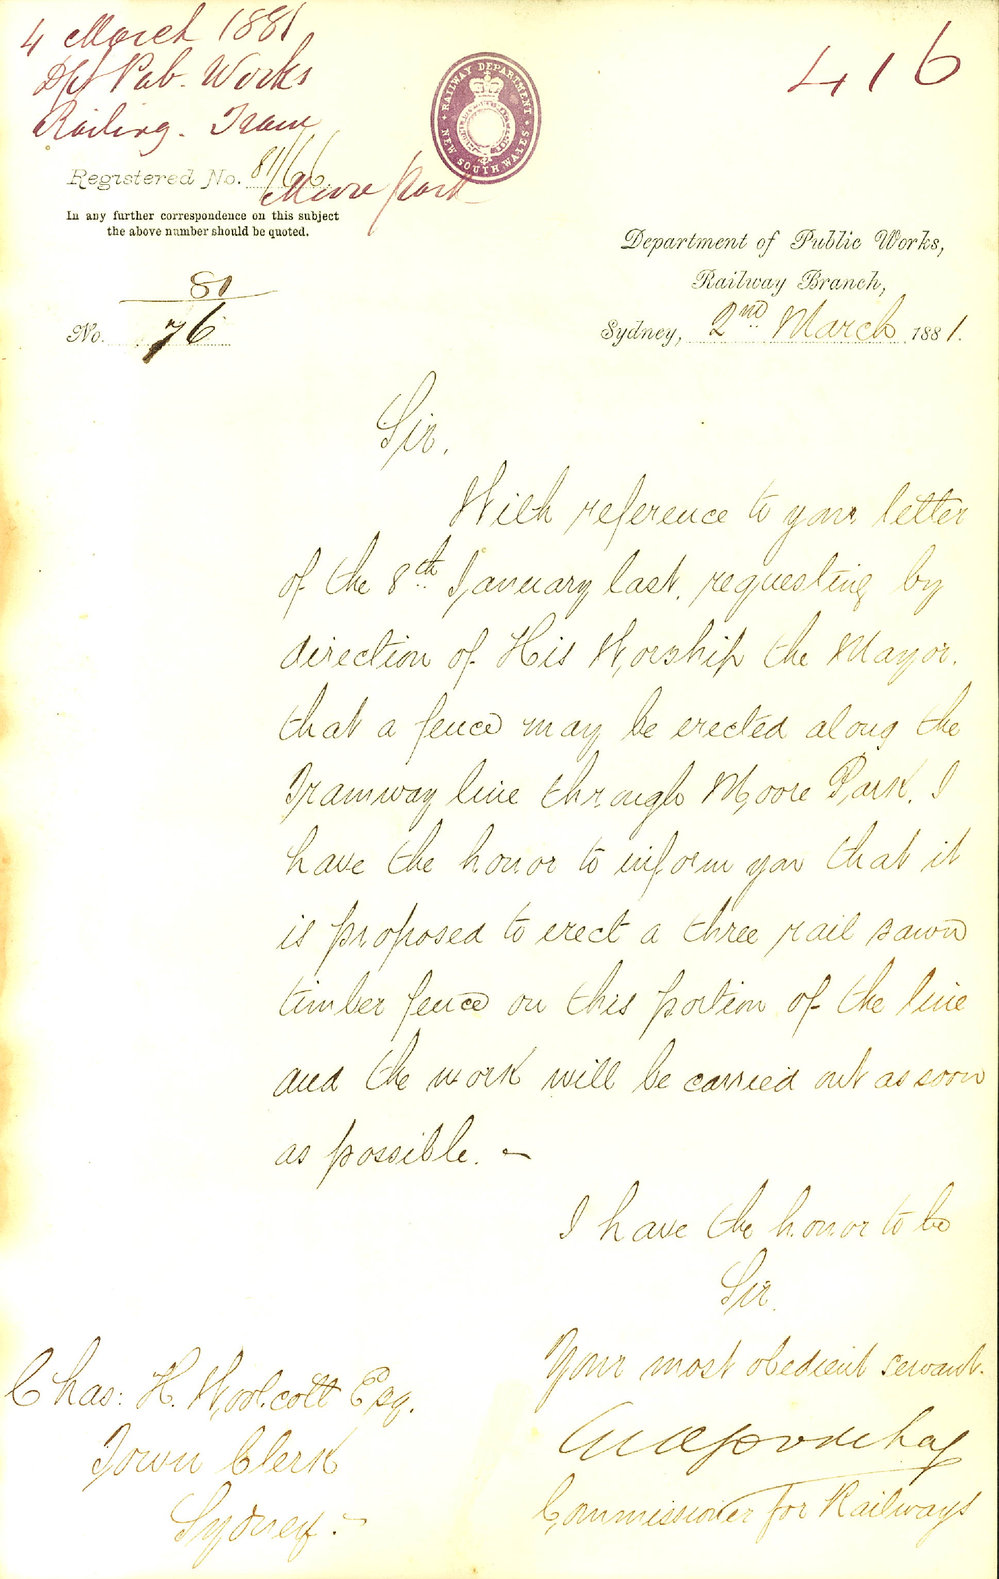 4 March 1881
Dpt Pub. Works
Railing. Tram
Moore Park
416
RAILWAY DEPARTMENT
NEW SOUTH WALES
Registered No. 81/66
In any further correspondence on this subject
the above number should be quoted.
81
No. 76
Department of Public Works,
Railway Branch,
Sydney, 2nd March 1881.
Sir,
With reference to your letter
of the 8th January last, requesting by
direction of His Worship the Mayor,
that a fence may be erected along the
Tramway line through Moore Park, I
have the honor to inform you that it
is proposed to erect a three rail sawn
timber fence on this portion of the line
and the work will be carried out as soon
as possible. -
I have the honor to be
Sir,
Your most obedient servant.
Commissioner for Railways
Chas: H. Woolcott Esq.
Town Clerk
Sydney. -